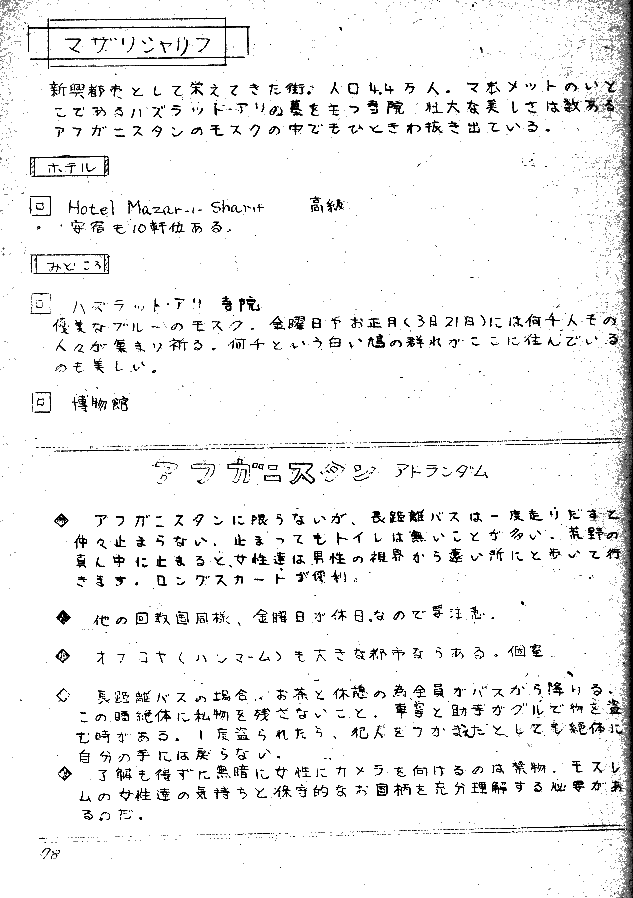 マザリシャリフ
新興都市として栄えてきた街。人口4.4万人。マホメットのいと
こであるハズラット・アリの墓をもつ寺院 壮大な美しさは数ある
アフガニスタンのモスクの中でもひときわ抜き出ている。
ホテル
Hotel Mazar-i-Sharif 高級
・安宿も10軒位ある。
みどころ
ハズラット・アリ 寺院
優美なブルーのモスク。金曜日やお正月(3月21日)には何千人もの
人々が集まり祈る。何千という白い鳩の群れがここに住んでいる
のも美しい。
博物館
アフガニスタン アトランダム
アフガニスタンに限らないが、長距離バスは一度走りだすと
仲々止まらない。止まってもトイレは無いことが多い。荒野の
真ん中に止まると、女性達は男性の視界から遠い所にと歩いて行
きます。ロングスカートが便利。
他の回教国同様、金曜日が休日なので要注意。
オフロヤ(ハンマーム)も大きな都市ならある。個室
長距離バスの場合、お茶と休憩の為全員がバスから降りる。
この時絶体に私物を残さないこと。車掌と助手がグルで物を盗
む時がある。1度盗られたら、犯人をつかまえたとしても絶体に
自分の手には戻らない。
了解も得ずに無暗に女性にカメラを向けるのは禁物。モスレ
ムの女性達の気持ちと保守的なお国柄を充分理解する必要があ
るのだ。
78